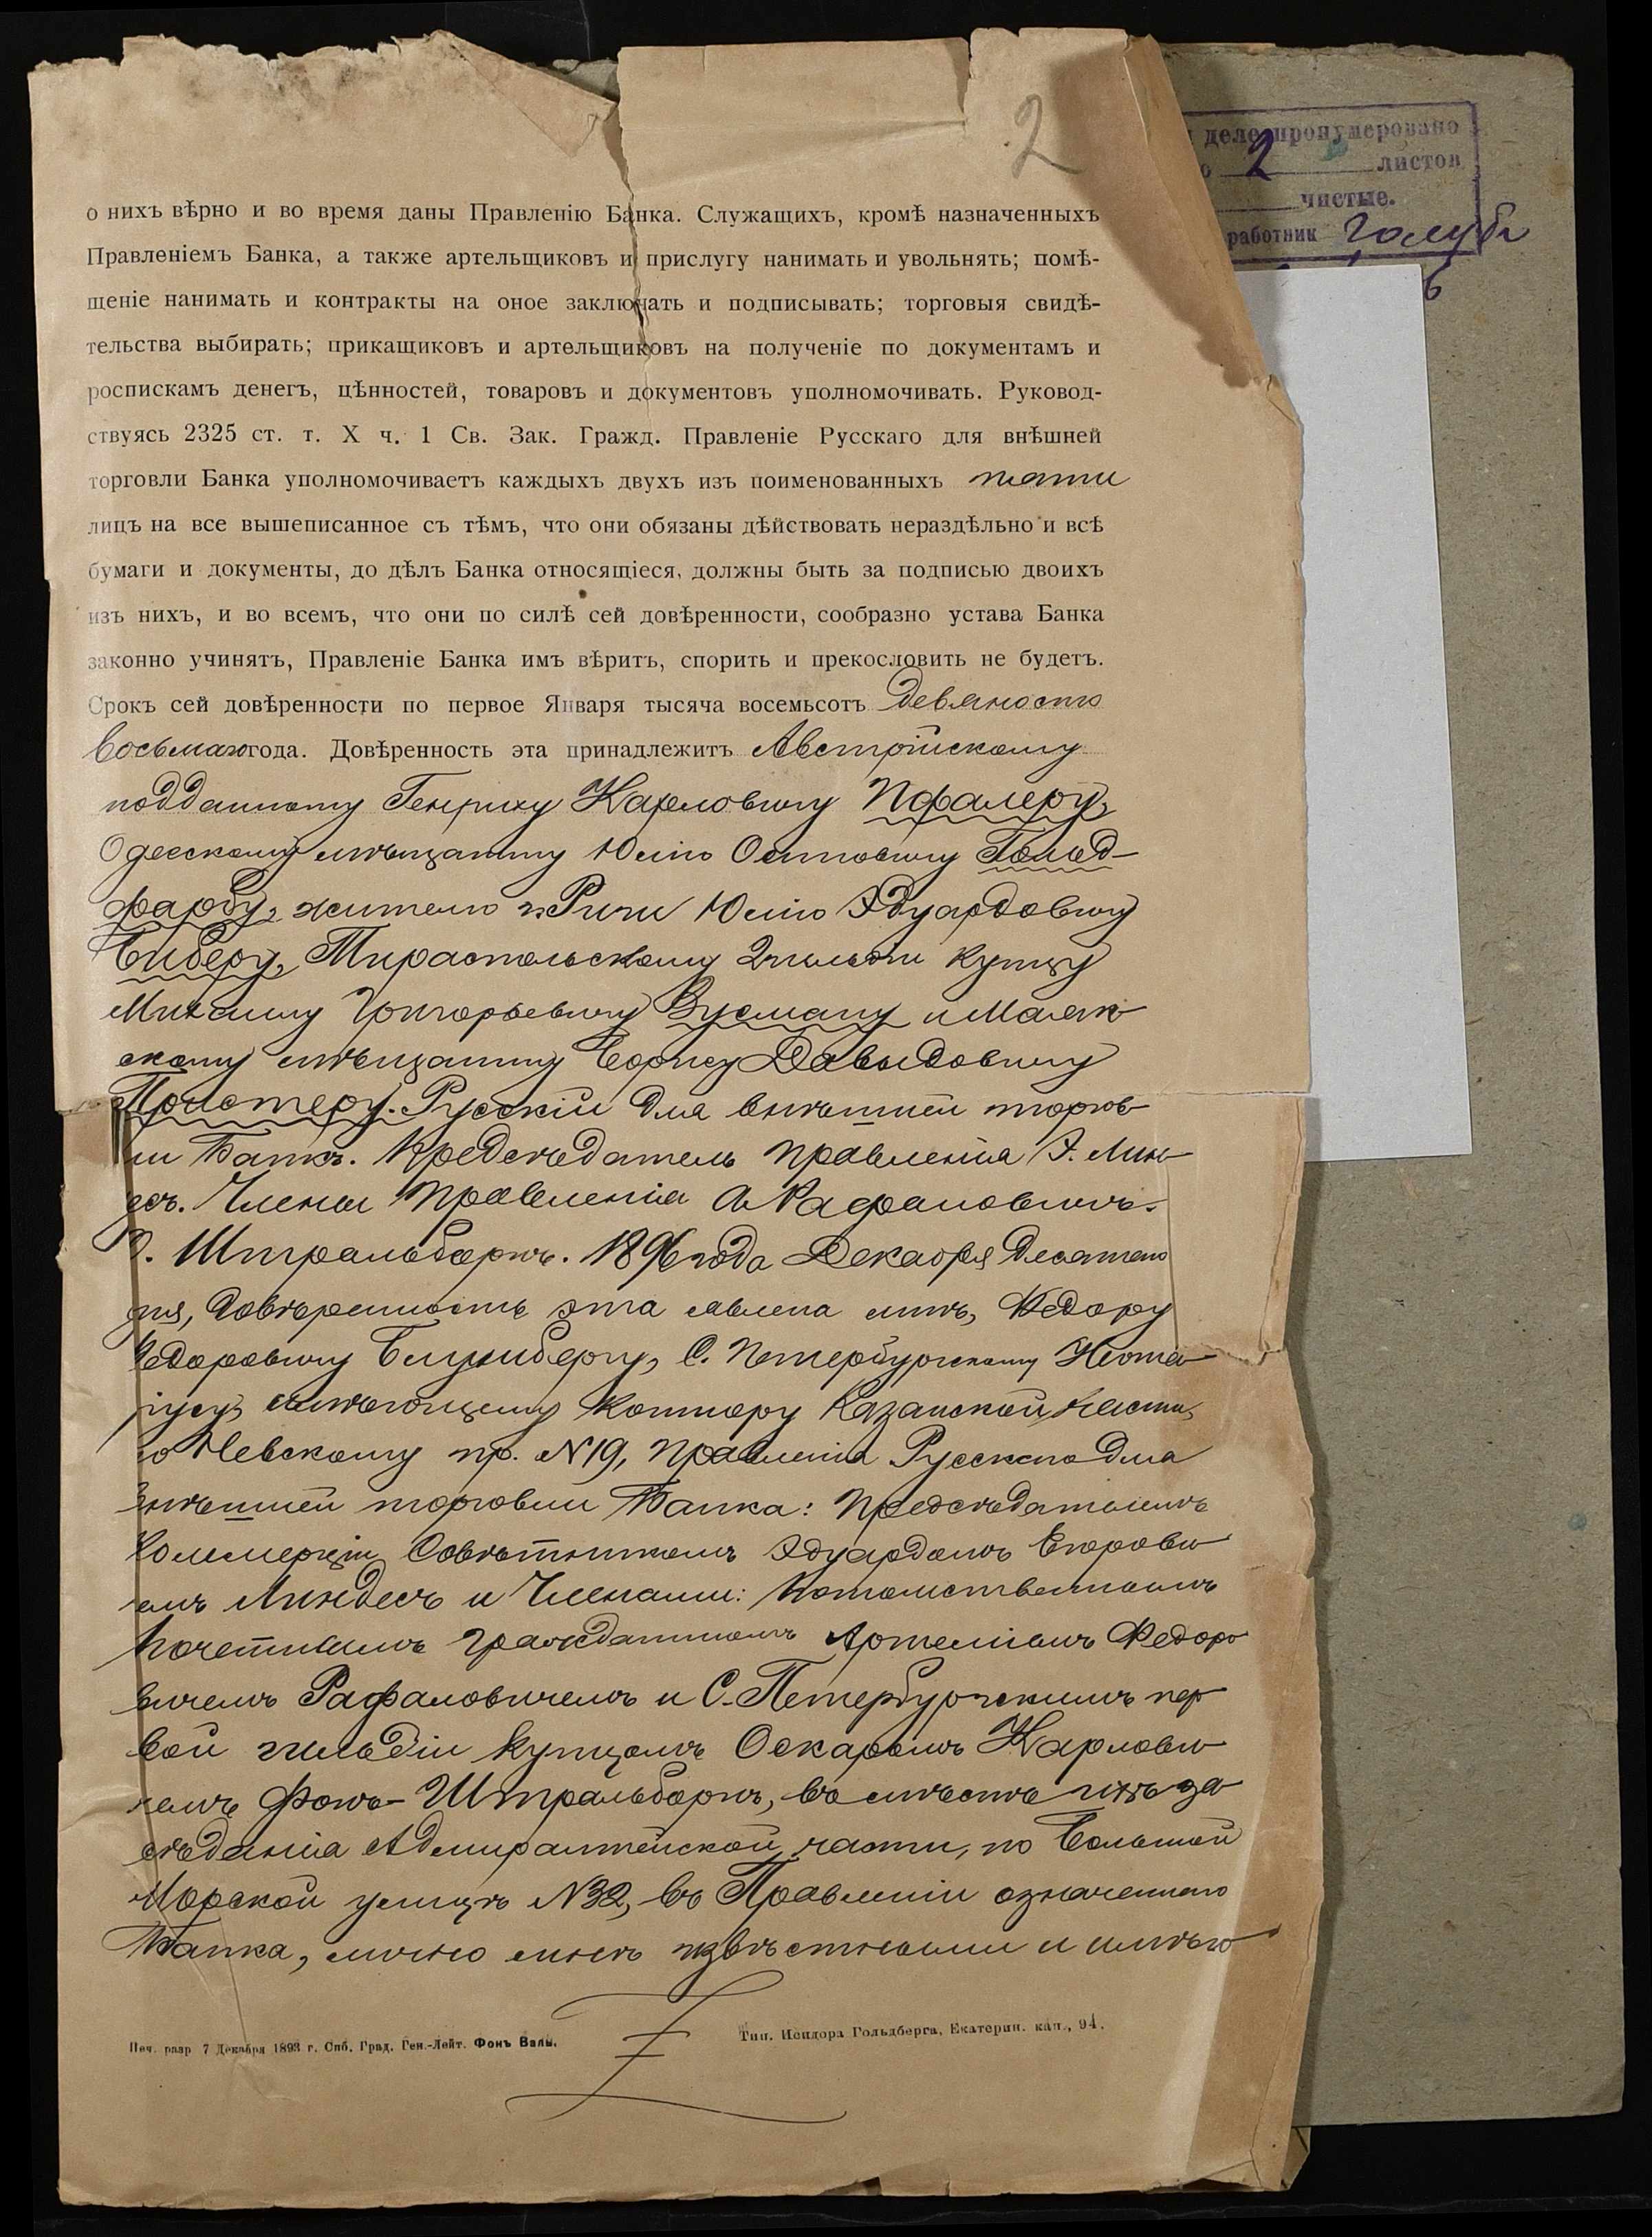 2
деле пронумеровано
2 листов
чистые.
работник
о нихъ вѣрно и во время даны Правленію Банка. Служащихъ, кромѣ назначенныхъ
Правленіемъ Банка, а также артельщиковъ и прислугу нанимать и увольнять; помѣ-
щеніе нанимать и контракты на оное заключать и подписывать; торговыя свидѣ-
тельства выбирать; прикащиковъ и артельщиковъ на полученіе по документамъ и
роспискамъ денегъ, цѣнностей, товаровъ и документовъ уполномочивать. Руковод-
ствуясь 2325 ст. т. X ч. 1 Св. Зак. Гражд. Правленіе Русскаго для внѣшней
торговли Банка уполномочиваетъ каждыхъ двухъ изъ поименованныхъ пяти
лицъ на все вышеписанное съ тѣмъ, что они обязаны дѣйствовать нераздѣльно и всѣ
бумаги и документы, до дѣлъ Банка относящіеся, должны быть за подписью двоихъ
изъ нихъ, и во всемъ, что они по силѣ сей довѣренности, сообразно устава Банка
законно учинятъ, Правленіе Банка имъ вѣритъ, спорить и прекословить не будетъ.
Срокъ сей довѣренности по первое Января тысяча восемьсотъ девяносто
восьмаго года. Довѣренность эта принадлежитъ Австрійскому
подданному Генриху Карловичу Пфалеру,
Одесскому мѣщанину Юлію Осиповичу Гольд-
фарбу, жителю г. Риги Юлію Эдуардовичу
Биберу, Тираспольскому 2 гильдіи купцу
Михаилу Григорьевичу Зусману и Маяк-
скому мѣщанину Борису Давыдовичу
Пристеру. Русскій для внѣшней торгов-
ли Банкъ. Предсѣдатель Правленія Э. Лин-
десъ. Члены Правленія А. Рафаловичъ.
О. Штральборнъ. 1896 года Декабря десятаго
дня, довѣренность эта явлена мнѣ, Федору
Федоровичу Блумбергу, С. Петербургскому Нота-
ріусу, имѣющему контору Казанской части,
по Невскому пр. N 19, Правленія Русскаго для
внѣшней торговли Банка: Предсѣдателемъ
Коммерціи Совѣтникомъ Эдуардомъ Егорови-
емъ Линдесъ и Членами: Потомственнымъ
Почетнымъ Гражданиномъ Артеміемъ Федоро
вичемъ Рафаловичемъ и С.-Петербургскимъ пер
вой гильдіи купцомъ Оскаромъ Карлови-
чемъ Фонъ-Штральборнъ, въ мѣстѣ ихъ за
сѣданія Адмиралтейской части, по Большой
Морской улицѣ N 32, въ Правленіи означеннаго
Банка, лично мнѣ извѣстными и имѣю
Печ. разр 7 Декабря 1893 г. Спб. Град. Ген.-Лейт. Фонъ Валь.
Тип. Исидора Гольдберга, Екатерин. кан., 94.